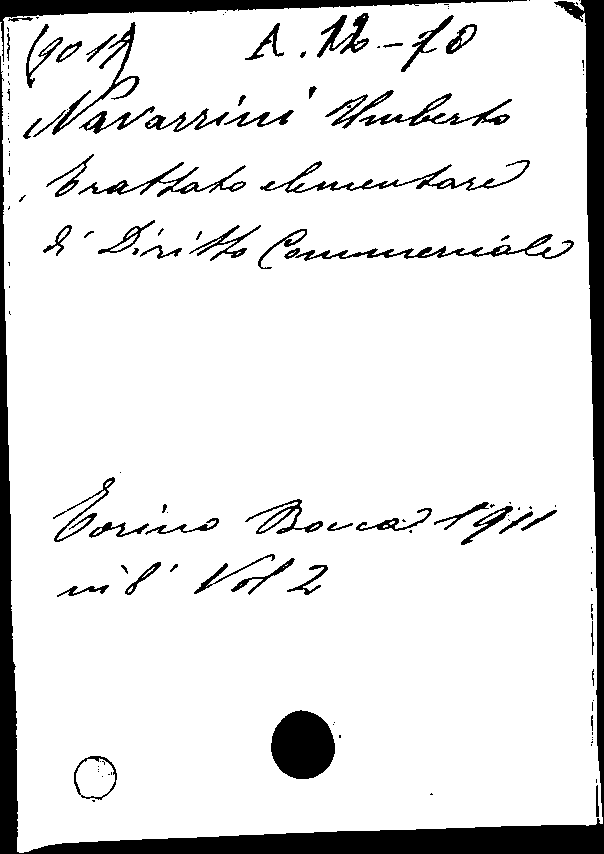 (9019) A. 12-70
Navarrini Umberto
Trattato elementare
di Diritto Commerciale
Torino Bocca 1911
in 8° Vol 2